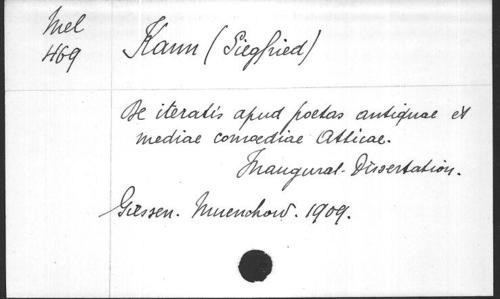 Mel
469
Kann (Siegfried)
De iteratis apud poetas antiquae et
mediae comœdiae Atticae.
Inaugural-Dissertation.
Giessen. Muenchow. 1909.